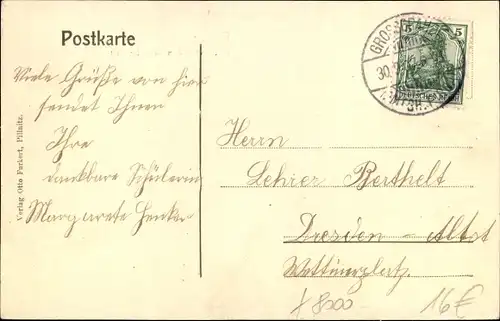 Postkarte
Viele Grüße von hier
sendet Ihnen
Ihre
dankbare Schülerin
Margarete Henker
Verlag Otto Purkert, Pillnitz.
5 5
30.
Herrn
Lehrer Berthelt
Dresden - Altst
Wettinerplatz.
8000.-
16€